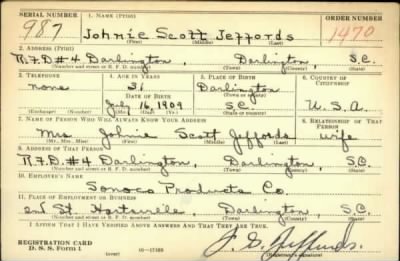 SERIAL NUMBER 1. NAME (Print) ORDER NUMBER
987 Johnie Scott Jeffords 1470
(First) (Middle) (Last)
2. ADDRESS (Print)
R.F.D.#4 Darlington, Darlington, S.C.
(Number and street or R. F. D. number) (Town) (County) (State)
3. TELEPHONE 4. AGE IN YEARS 5. PLACE OF BIRTH 6. COUNTRY OF CITIZENSHIP
none 31 Darlington
DATE OF BIRTH
July 16, 1909 S.C. U.S.A.
(Exchange) (Number) (Mo.) (Day) (Yr.) (State or country)
7. NAME OF PERSON WHO WILL ALWAYS KNOW YOUR ADDRESS 8. RELATIONSHIP OF THAT PERSON
Mrs Johnie Scott Jeffords wife
(Mr., Mrs., Miss) (First) (Middle) (Last)
9. ADDRESS OF THAT PERSON
R.F.D.#4 Darlington, Darlington, S.C.
(Number and street or R. F. D. number) (Town) (County) (State)
10. EMPLOYER'S NAME
Sonoco Products Co.
11. PLACE OF EMPLOYMENT OR BUSINESS
2nd St. Hartsville, Darlington, S.C.
(Number and street or R. F. D. number) (Town) (County) (State)
I AFFIRM THAT I HAVE VERIFIED ABOVE ANSWERS AND THAT THEY ARE TRUE.
REGISTRATION CARD
D. S. S. Form 1 (over) 16—17105 J. S. Jeffords.